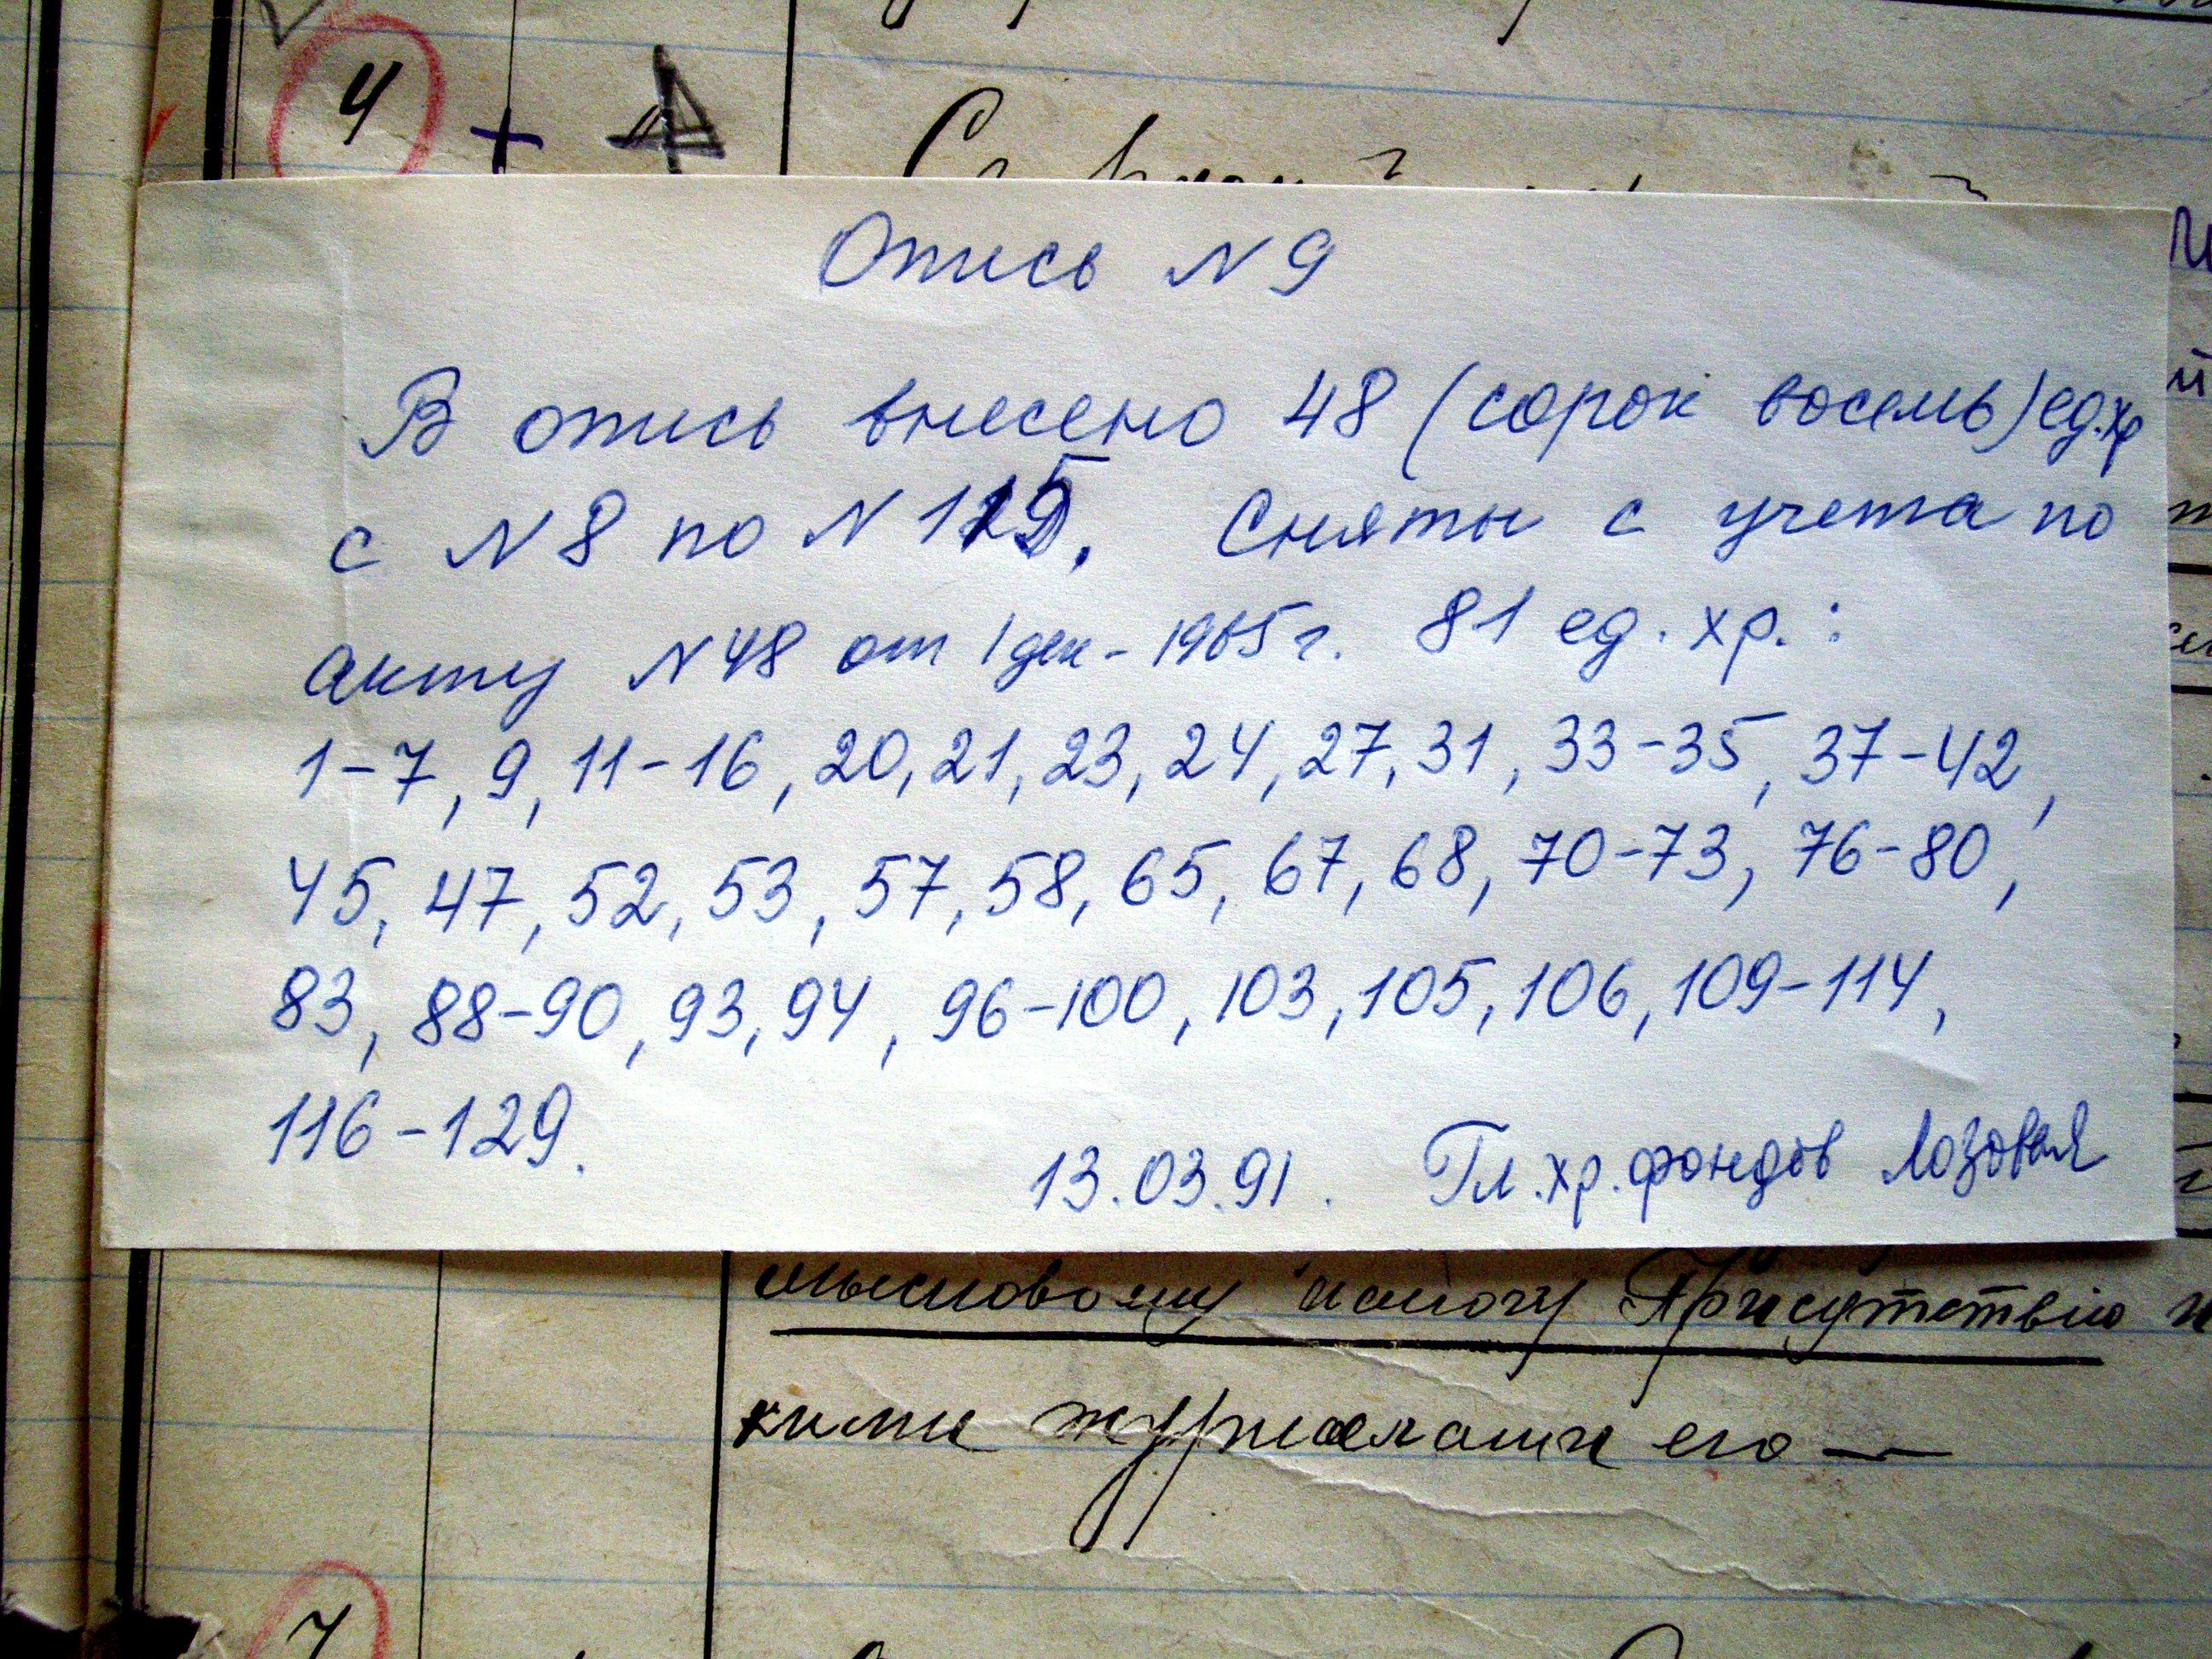 4 +
Опись N 9
В опись внесено 48 (сорок восемь) ед.хр
с N 8 по N 115. Сняты с учета по
акту N 48 от 1 дек - 1965 г. 81 ед. хр. :
1-7, 9, 11-16, 20, 21, 23, 24, 27, 31, 33-35, 37-42,
45, 47, 52, 53, 57, 58, 65, 67, 68, 70-73, 76-80,
83, 88-90, 93, 94, 96-100, 103, 105, 106, 109-114,
116-129.
13.03.91. Гл.хр.фондов Лозовая
мысловому налогу Присутствію
кими журналами его —
7